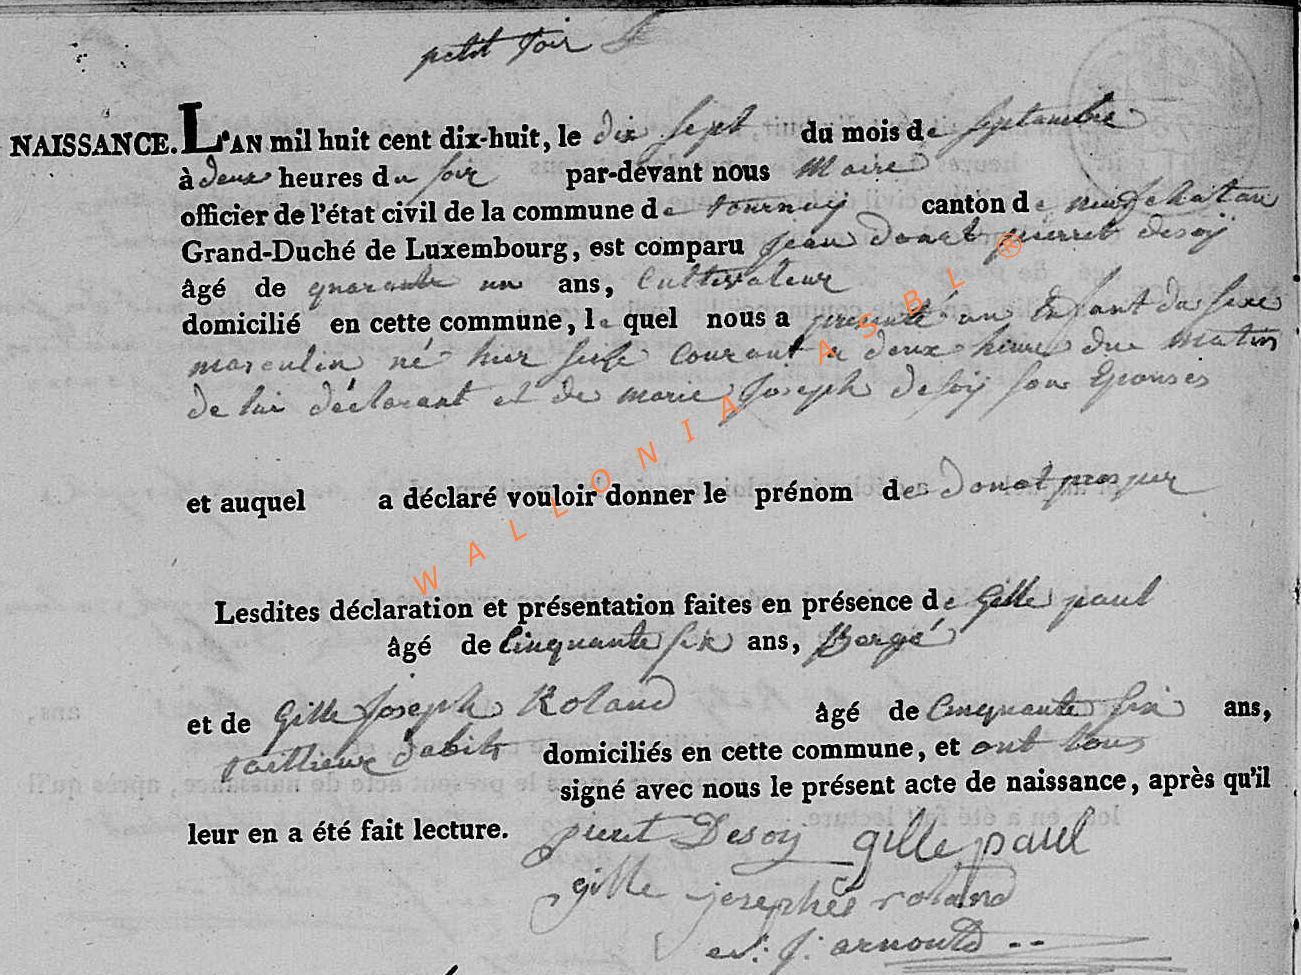 petit voir
NAISSANCE. L'AN mil huit cent dix-huit, le dix sept du mois de septambre
à deux heures du soir par-devant nous Maire
officier de l'état civil de la commune de tournay canton de neufchatau
Grand-Duché de Luxembourg, est comparu jean donat pierret desoÿ
âgé de quarante un ans, Cultivateur
domicilié en cette commune, le quel nous a presenté un Enfant du sexe
masculin né hier seize Courant a deux heures due matin
de lui déclarant et de marie Joseph desoÿ son Epouses
et auquel a déclaré vouloir donner le prénom des donat prosper
Lesdites déclaration et présentation faites en présence de Gille paul
âgé de Cinquante six ans, Bergé
et de Gille Joseph Roland âgé de Cinquante six ans,
taillieur dabits domiciliés en cette commune, et ont tous
signé avec nous le présent acte de naissance, après qu'il
leur en a été fait lecture. pierret Desoy gille paul
gille josephe roland
j: arnould
WALLONIA ASBL ®